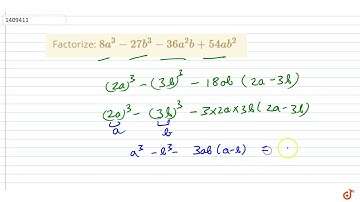 1409411
Factorize: 8a³ − 27b³ − 36a²b + 54ab²
(2a)³ − (3b)³ − 18ab (2a − 3b)
(2a)³ − (3b)³ − 3×2a×3b (2a − 3b)
a b
a³ − b³ − 3ab (a−b) ⇒